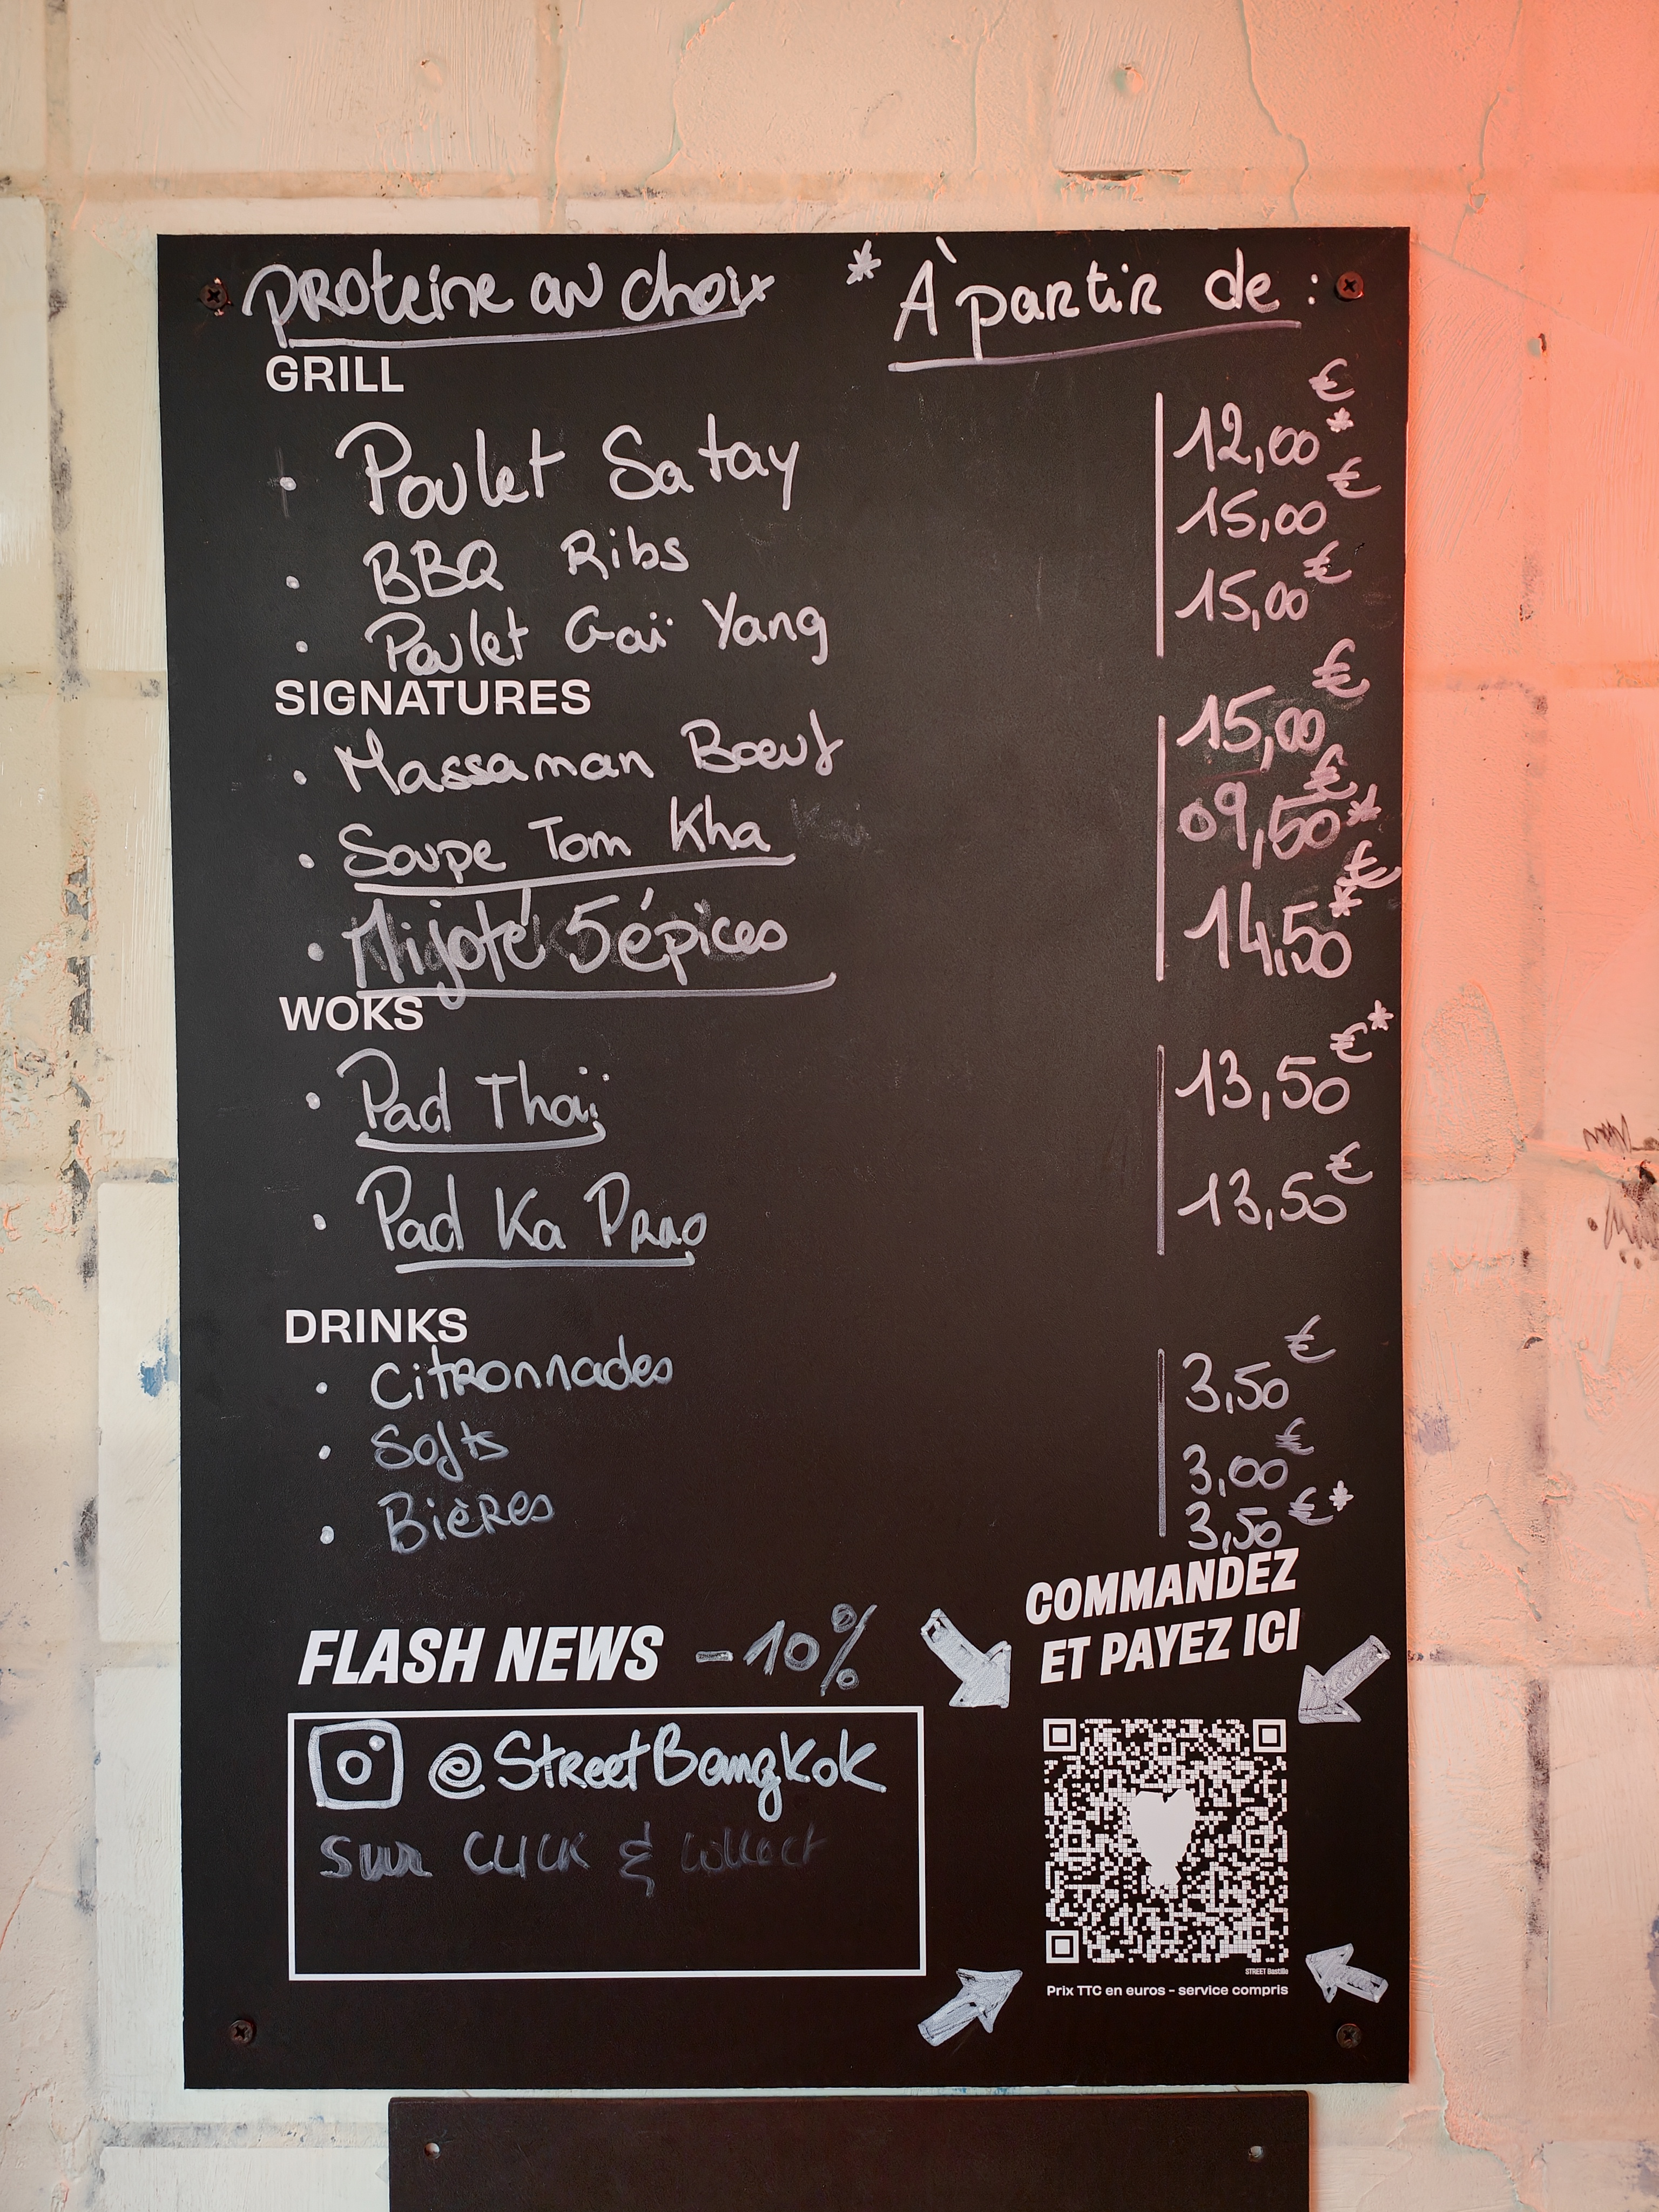 Proteine au choix * À partir de :
GRILL
• Poulet Satay 12,00€*
• BBQ Ribs 15,00€
• Poulet Gaï Yang 15,00€
SIGNATURES
• Massaman Bœuf 15,00€
• Soupe Tom Kha 09,50€*
• Mijoté 5 épices 14,50€*
WOKS
• Pad Thaï 13,50€*
• Pad Ka Prao 13,50€
DRINKS
• Citronnades 3,50€
• Softs 3,00€
• Bières 3,50€*
COMMANDEZ
ET PAYEZ ICI
FLASH NEWS -10%
@StreetBangkok
sur CLICK & collect
STREET Bastille
Prix TTC en euros - service compris